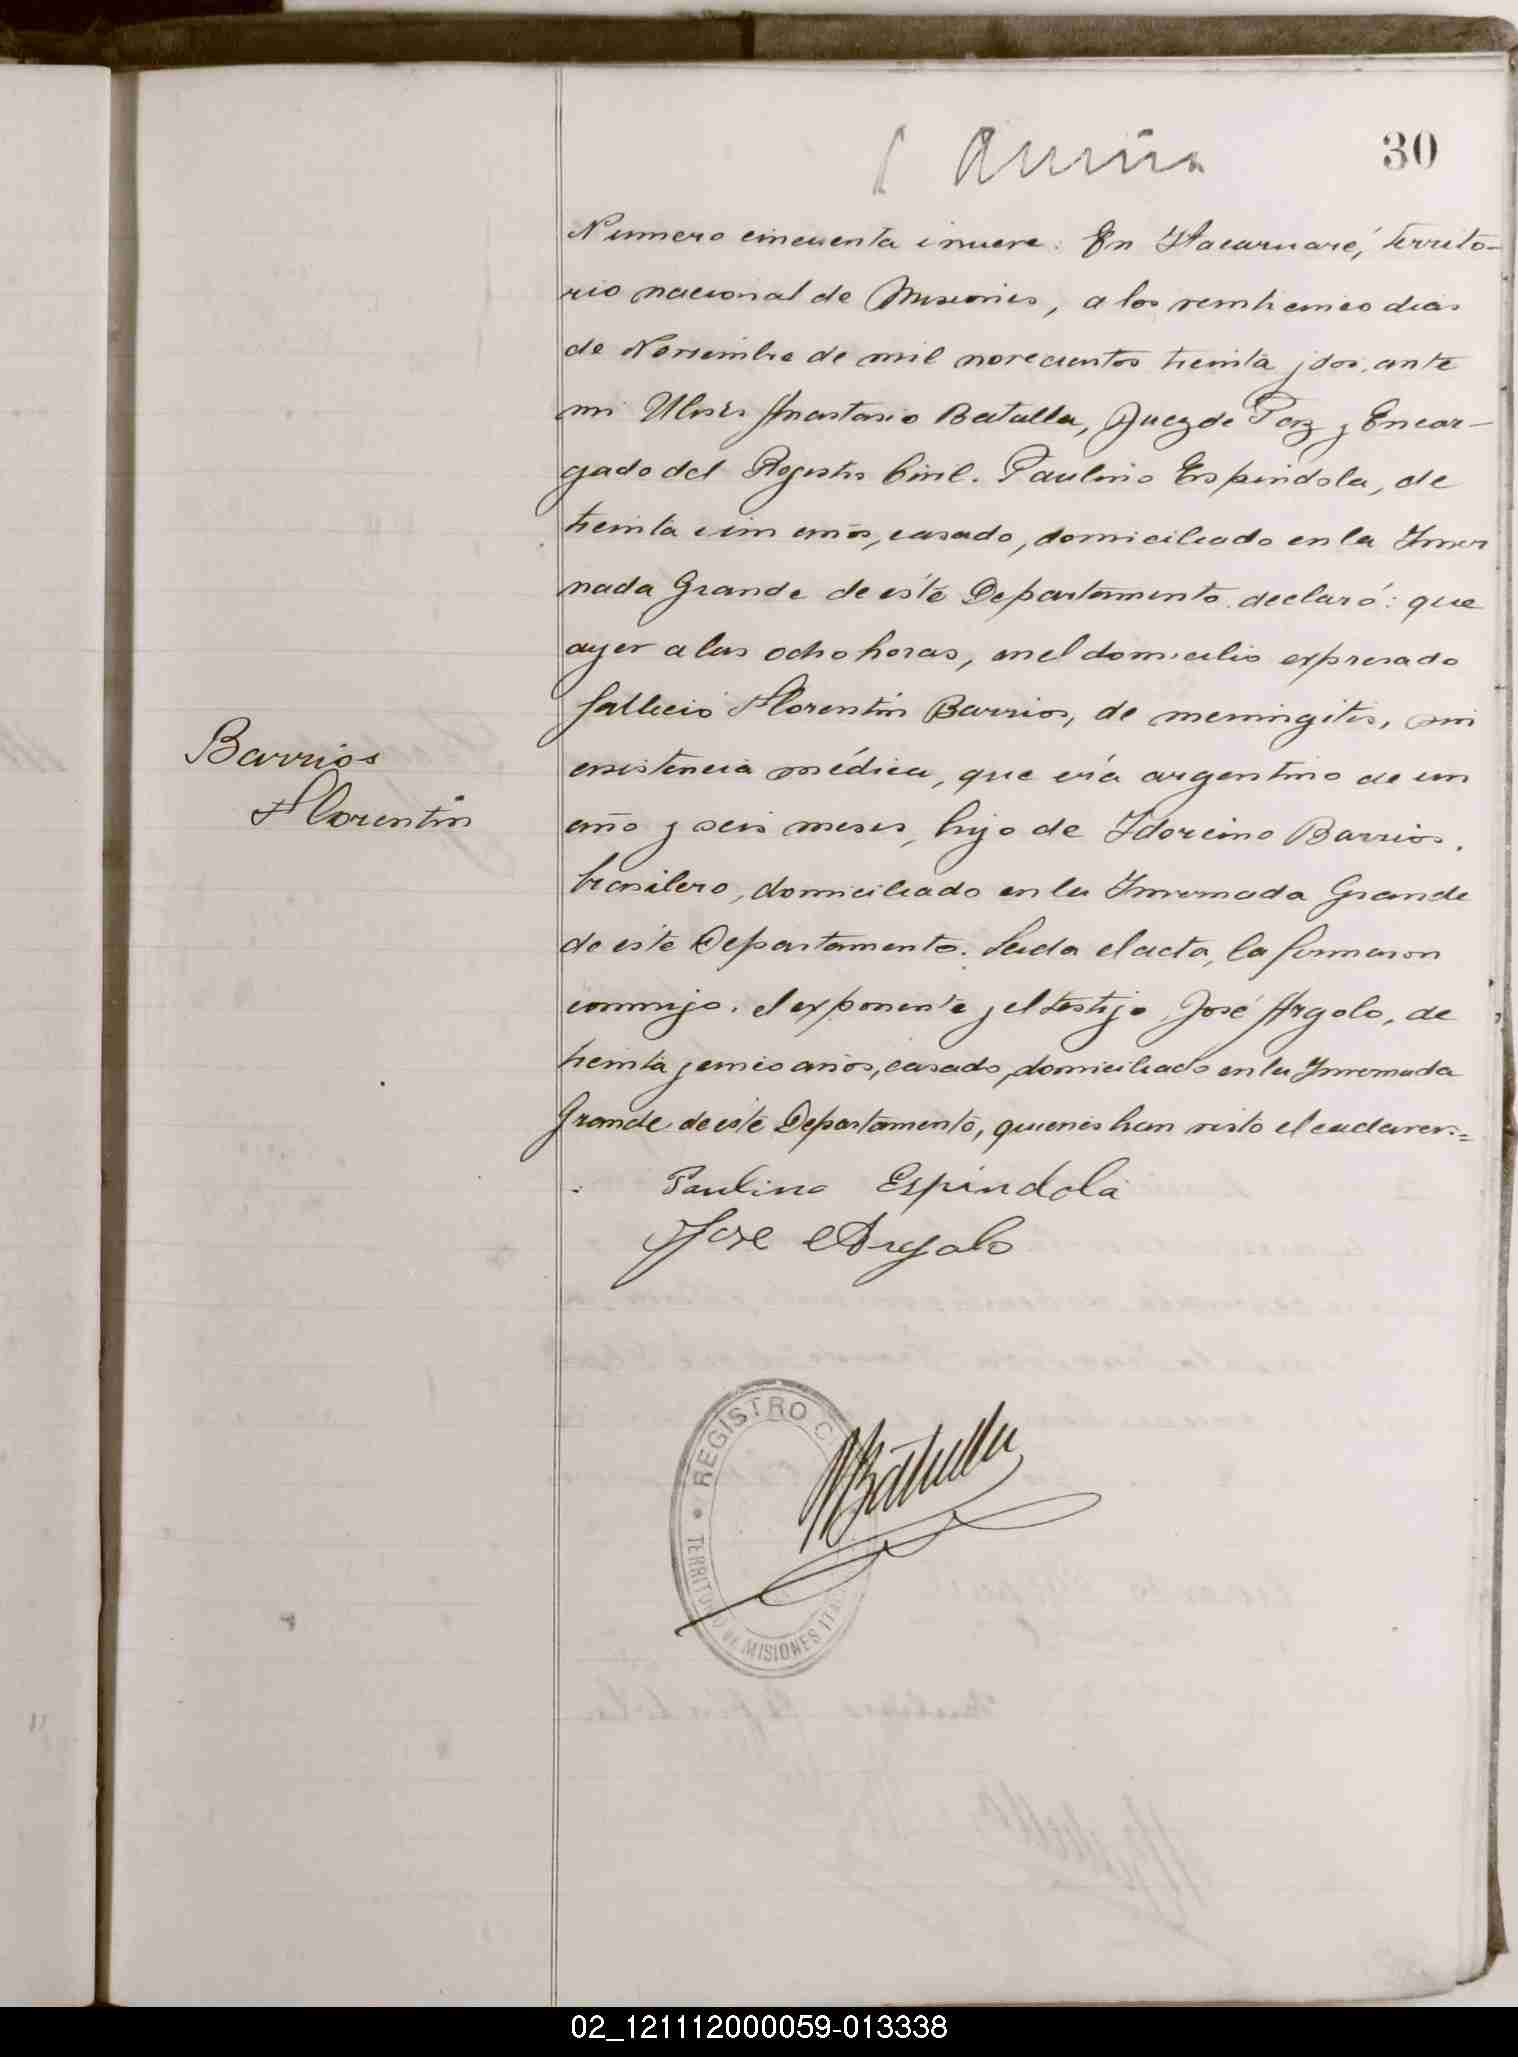 30
Numero cincuenta i nueve: En Itacaruaré, territo-
rio nacional de Misiones, a los veinticinco dias
de Noviembre de mil novecientos treinta y dos, ante
mi Ulises Anastasio Batalla, Juez de Paz y Encar-
gado del Registro Civil. Paulino Espindola, de
treinta i un años, casado, domiciliado en la Inver
nada Grande de éste Departamento declaró: que
ayer a las ocho horas, en el domicilio expresado
falleció Florentin Barrios, de meningitis, sin
Barrios
Florentin
asistencia médica, que era argentino de un
año y seis meses, hijo de Idorcino Barrios,
brasilero, domiciliado en la Invernada Grande
de éste Departamento. Leida el acta, la firmaron
conmigo, el exponente y el testigo José Argolo, de
treinta y cinco años, casado, domiciliado en la Invernada
Grande de éste Departamento, quienes han visto el cadaver.=
Paulino Espíndola
Jose Argolo
Batalla
REGISTRO C
TERRITORIO DE MISIONES ITA
02_121112000059-013338